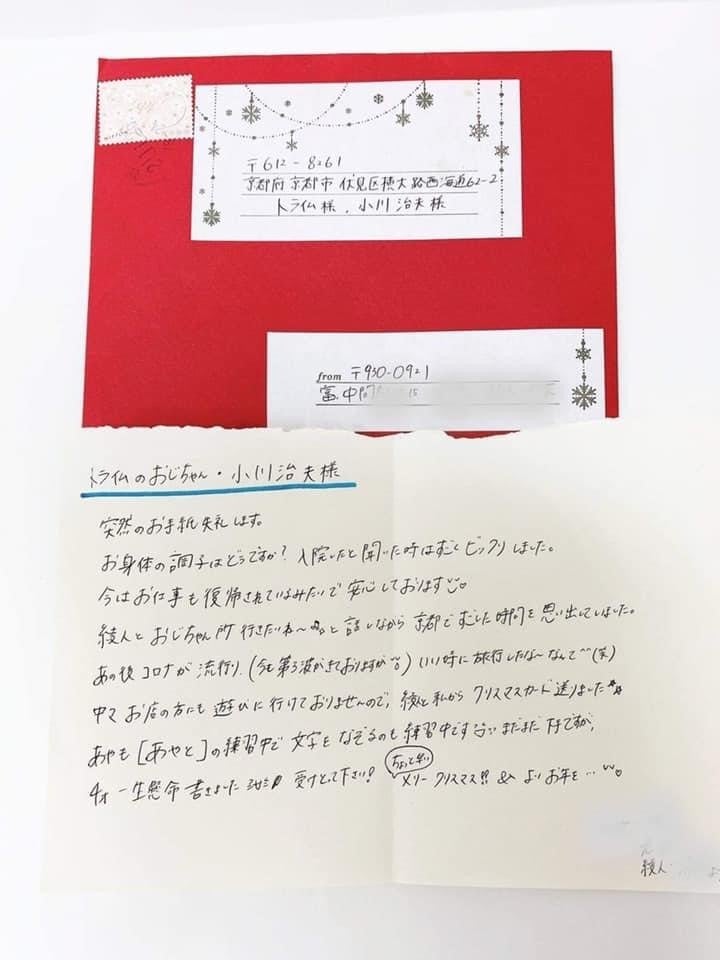 〒612-8261
京都府京都市伏見区横大路西海道62-2
トライム様・小川治夫様
from 〒930-0921
富 中
トライムのおじちゃん・小川治夫様
突然のお手紙失礼します。
お身体の調子はどうですか?入院したと聞いた時はすごくビックリしました。
今はお仕事も復帰されているみたいで安心しております
綾人とおじちゃん所行きたいね〜と話しながら京都ですごした時間を思い出していました。
あの後コロナが流行り、(今も第3波がきておりますが)いい時に旅行したな〜なんて(笑)
中々お店の方にも遊びに行けておりませんので、綾人と私からクリスマスカード送りました
あやも[あやと]の練習中で文字をなぞるのも練習中です まだまだ下手ですが、
4才一生懸命書きました 受けとって下さい!
ちょっと早い
メリークリスマス!! & よいお年を…
綾人
より